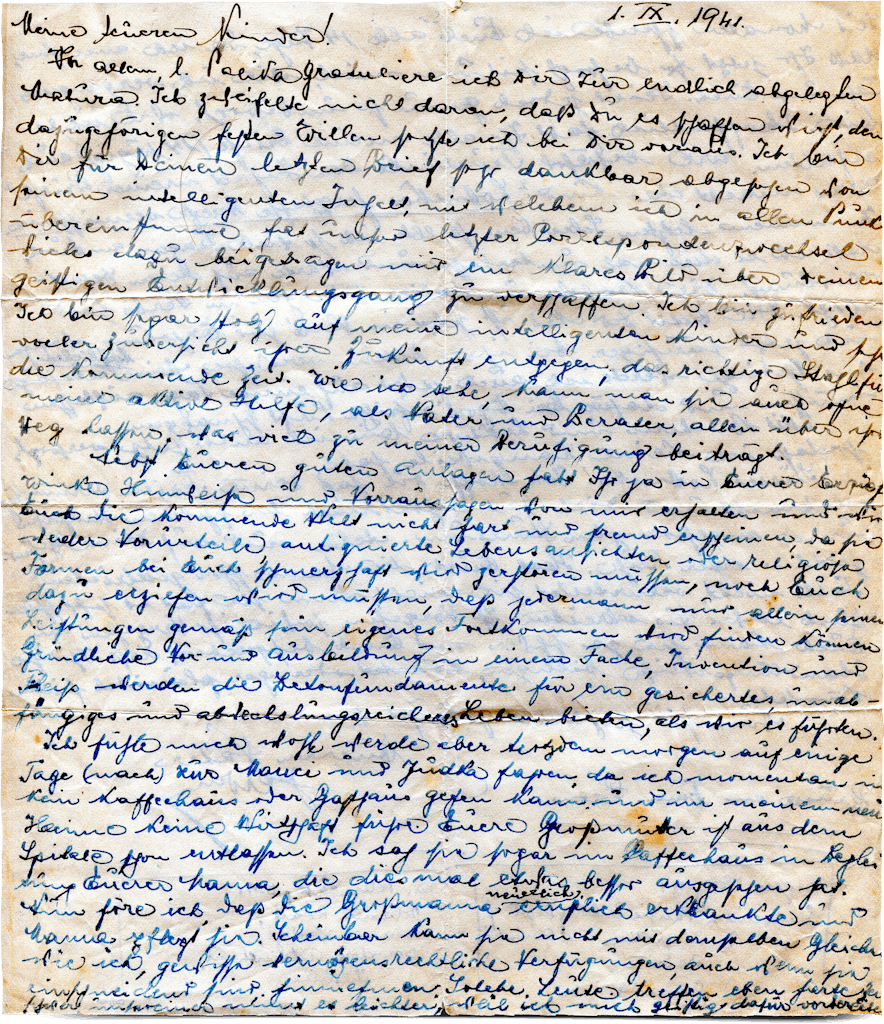 1. IX. 1941.
Meine teueren Kinder!
Vor allem, l. Palika gratuliere ich Dir zur endlich abgelegten
Matura. Ich zweifelte nicht daran, daß Du es schaffen wirst, den
dazugehörigen festen Willen setzte ich bei Dir voraus. Ich bin
Dir für Deinen letzten Brief sehr dankbar, abgesehen von
seinem intelligenten Inhalt, mit welchem ich in allen
übereinstimme hat unser letzter Correspondenzwechsel
vieles dazu beigetragen mir ein klares Bild über Deinen
geistigen Entwicklungsgang zu verschaffen. Ich bin zufrieden
Ich bin sogar stolz auf meine intelligenten Kinder und
voller Zuversicht ihrer Zukunft entgegen, das richtige
die kommende Zeit. Wie ich sehe, kann man sie auch ohne
meine aktive Hilfe, als Vater und Berater, allein über
Weg lassen, was viel zu meiner Beruhigung beiträgt.
Nebst Eueren guten Anlagen habt Ihr ja in Euerer
Winke Hinweise und Voraussagen von mir erhalten und
Euch die kommende Welt nicht hart und fremd erscheinen, da sie
weder Vorurteile, antiquierte Lebensansichten oder religiöse
Formen bei Euch schmerzhaft wird zerstören müssen, noch Euch
dazu erziehen wird müssen, daß jedermann nur allein seinen
Leistungen gemäß sein eigenes Fortkommen wird finden können
Gründliche Vor- und Ausbildung in einem Fache, Invention und
Fleiß werden die Betonfundamente für ein gesichertes, unab
hängiges und abwechslungsreicheres Leben bieten, als wir es führten.
Ich fühle mich wohl werde aber trotzdem morgen auf einige
Tage (nach) zur Manci und Judka fahren, da ich momentan in
kein Kaffeehaus oder Gasthaus gehen kann und in meinem
Heime keine Wirtschaft führe Euere Großmutter ist aus dem
Spitale schon entlassen. Ich sah sie sogar im Kaffeehaus in Beglei
tung Euerer Mama, die diesmal etwas besser ausgesehen hat.
Nun höre ich, daß die Großmama neuerlich ernstlich erkrankte und
Mama pflegt sie. Scheinbar kann sie nicht mit demselben Gleichm
wie ich, gewisse vermögensrechtliche Verfügungen, auch wenn sie
einschneidend sind hinnehmen. Solche Leute treffen eben harte
nimmt es leichter, weil ich mich geistig dafür vorbereitete